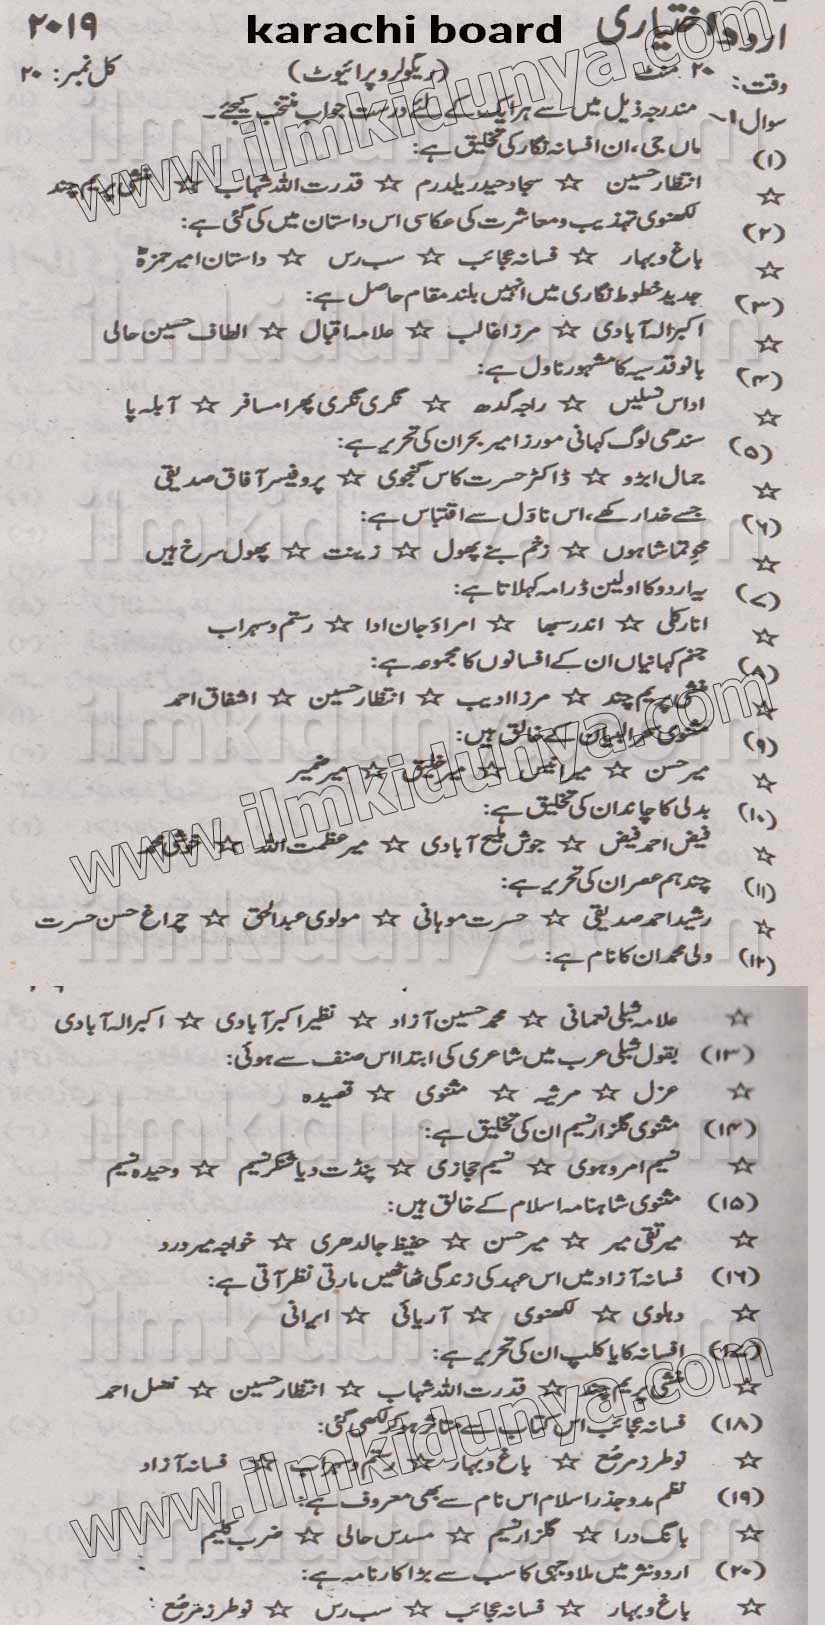 karachi board
اردو اختیاری ۲۰۱۹
وقت: ۲۰ منٹ (ریگولر و پرائیوٹ) کل نمبر: ۲۰
سوال ۱۔ مندرجہ ذیل میں سے ہر ایک کے لئے درست جواب منتخب کیجئے۔
(۱) ماں جی، ان افسانہ نگار کی تخلیق ہے:
☆ انتظار حسین ☆ سجاد حیدر یلدرم ☆ قدرت اللہ شہاب ☆ منشی پریم چند
(۲) لکھنوی تہذیب و معاشرت کی عکاسی اس داستان میں کی گئی ہے:
☆ باغ و بہار ☆ فسانہ عجائب ☆ سب رس ☆ داستان امیر حمزہؓ
(۳) جدید خطوط نگاری میں انہیں بلند مقام حاصل ہے:
☆ اکبر الہ آبادی ☆ مرزا غالب ☆ علامہ اقبال ☆ الطاف حسین حالی
(۴) بانو قدسیہ کا مشہور ناول ہے:
☆ اداس نسلیں ☆ راجہ گدھ ☆ نگری نگری پھرا مسافر ☆ آبلہ پا
(۵) سندھی لوگ کہانی مورڑ امیر بحر ان کی تحریر ہے:
☆ جمال ابڑو ☆ ڈاکٹر حسرت کاس گنجوی ☆ پروفیسر آفاق صدیقی
(۶) جسے خدا رکھے، اس ناول سے اقتباس ہے:
☆ محوِ تماشا ہوں ☆ زخم بنے پھول ☆ زینت ☆ پھول سرخ ہیں
(۷) یہ اردو کا اولین ڈرامہ کہلاتا ہے:
☆ انار کلی ☆ اندر سبھا ☆ امراؤ جان ادا ☆ رستم و سہراب
(۸) جنم کہانیاں ان کے افسانوں کا مجموعہ ہے:
☆ منشی پریم چند ☆ مرزا ادیب ☆ انتظار حسین ☆ اشفاق احمد
(۹) مثنوی سحر البیان کے خالق ہیں:
☆ میر حسن ☆ میر انیس ☆ میر خلیق ☆ میر ضمیر
(۱۰) بدلی کا چاند ان کی تخلیق ہے:
☆ فیض احمد فیض ☆ جوش ملیح آبادی ☆ میر عظمت اللہ ☆ خوشی محمد
(۱۱) چند ہم عصر ان کی تحریر ہے:
☆ رشید احمد صدیقی ☆ حسرت موہانی ☆ مولوی عبدالحق ☆ چراغ حسن حسرت
(۱۲) ولی محمد ان کا نام ہے:
☆ علامہ شبلی نعمانی ☆ محمد حسین آزاد ☆ نظیر اکبر آبادی ☆ اکبر الہ آبادی
(۱۳) بقول شبلی عرب میں شاعری کی ابتدا اس صنف سے ہوئی:
☆ غزل ☆ مرثیہ ☆ مثنوی ☆ قصیدہ
(۱۴) مثنوی گلزار نسیم ان کی تخلیق ہے:
☆ نسیم امروہوی ☆ نسیم حجازی ☆ پنڈت دیا شنکر نسیم ☆ وحیدہ نسیم
(۱۵) مثنوی شاہنامہ اسلام کے خالق ہیں:
☆ میر تقی میر ☆ میر حسن ☆ حفیظ جالندھری ☆ خواجہ میر درد
(۱۶) فسانہ آزاد میں اس عہد کی زندگی ٹھاٹھیں مارتی نظر آتی ہے:
☆ دہلوی ☆ لکھنوی ☆ آریائی ☆ ایرانی
(۱۷) افسانہ کایا کلپ ان کی تحریر ہے:
☆ منشی پریم چند ☆ قدرت اللہ شہاب ☆ انتظار حسین ☆ فضل احمد
(۱۸) فسانہ عجائب اس کتاب سے متاثر ہو کر لکھی گئی:
☆ نو طرز مرصع ☆ باغ و بہار ☆ رستم و سہراب ☆ فسانہ آزاد
(۱۹) نظم مدوجذر اسلام اس نام سے بھی معروف ہے:
☆ بانگ درا ☆ گلزار نسیم ☆ مسدس حالی ☆ ضرب کلیم
(۲۰) اردو نثر میں ملا وجہی کا سب سے بڑا کارنامہ ہے:
☆ باغ و بہار ☆ فسانہ عجائب ☆ سب رس ☆ نو طرز مرصع
www.ilmkidunya.com